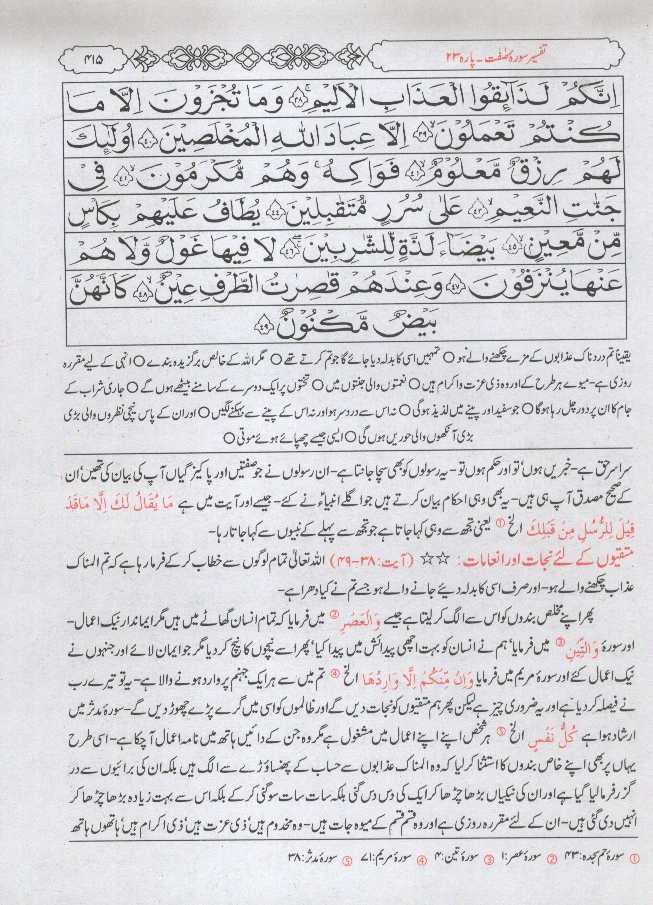 تفسیر سورۂ صٰفٰت۔ پارہ ۲۳
۴۱۵
اِنَّكُمْ لَذَآئِقُوا الْعَذَابِ الْاَلِيْمِ ﴿۳۸﴾ وَمَا تُجْزَوْنَ اِلَّا مَا
كُنْتُمْ تَعْمَلُوْنَ ﴿۳۹﴾ اِلَّا عِبَادَ اللّٰهِ الْمُخْلَصِيْنَ ﴿۴۰﴾ اُولٰٓئِكَ
لَهُمْ رِزْقٌ مَّعْلُوْمٌ ﴿۴۱﴾ فَوَاكِهُ ۚ وَهُمْ مُّكْرَمُوْنَ ﴿۴۲﴾ فِيْ
جَنّٰتِ النَّعِيْمِ ﴿۴۳﴾ عَلٰى سُرُرٍ مُّتَقٰبِلِيْنَ ﴿۴۴﴾ يُطَافُ عَلَيْهِمْ بِكَاْسٍ
مِّنْ مَّعِيْنٍ ﴿۴۵﴾ بَيْضَآءَ لَذَّةٍ لِّلشّٰرِبِيْنَ ﴿۴۶﴾ لَا فِيْهَا غَوْلٌ وَّلَا هُمْ
عَنْهَا يُنْزَفُوْنَ ﴿۴۷﴾ وَعِنْدَهُمْ قٰصِرٰتُ الطَّرْفِ عِيْنٌ ﴿۴۸﴾ كَاَنَّهُنَّ
بَيْضٌ مَّكْنُوْنٌ ﴿۴۹﴾
یقیناً تم دردناک عذابوں کے مزے چکھنے والے ہو ○ تمہیں اسی کا بدلہ دیا جائے گا جو تم کرتے تھے ○ مگر اللہ کے خالص برگزیدہ بندے ○ انہی کے لیے مقررہ
روزی ہے۔ میوے ہر طرح کے اور وہ ذی عزت و اکرام ہیں ○ نعمتوں والی جنتوں میں ○ تختوں پر ایک دوسرے کے سامنے بیٹھے ہوں گے ○ جاری شراب کے
جام کا ان پر دور چل رہا ہوگا ○ جو سفید اور پینے میں لذیذ ہوگی ○ نہ اس سے درد سر ہو اور نہ اس کے پینے سے بہکنے لگیں ○ اور ان کے پاس نیچی نظروں والی بڑی
بڑی آنکھوں والی حوریں ہوں گی ○ ایسی جیسے چھپائے ہوئے موتی ○
سراسر حق ہے۔ خبریں ہوں، تو اور حکم ہوں تو۔ یہ رسولوں کو بھی سچا جانتا ہے۔ ان رسولوں نے جو صفتیں اور پاکیزگیاں آپ کی بیان کی تھیں، ان
کے صحیح مصدق آپ ہی ہیں۔ یہ بھی وہی احکام بیان کرتے ہیں جو اگلے انبیاءؑ نے کئے۔ جیسے اور آیت میں ہے مَا يُقَالُ لَكَ اِلَّا مَا قَدْ
قِيْلَ لِلرُّسُلِ مِنْ قَبْلِكَ الخ ① یعنی تجھ سے وہی کہا جاتا ہے جو تجھ سے پہلے کے نبیوں سے کہا جاتا رہا۔
متقیوں کے لئے نجات اور انعامات: ☆☆ (آیت: ۳۸-۴۹) اللہ تعالیٰ تمام لوگوں سے خطاب کر کے فرما رہا ہے کہ تم المناک
عذاب چکھنے والے ہو۔ اور صرف اسی کا بدلہ دیئے جانے والے ہو جسے تم نے کیا دھرا ہے۔
پھر اپنے مخلص بندوں کو اس سے الگ کر لیتا ہے جیسے وَالْعَصْرِ ② میں فرمایا کہ تمام انسان گھاٹے میں ہیں مگر ایماندار نیک اعمال۔
اور سورۂ وَالتِّيْنِ ③ میں فرمایا، ہم نے انسان کو بہت اچھی پیدائش میں پیدا کیا، پھر اسے نیچوں کا نیچ کر دیا مگر جو ایمان لائے اور جنہوں نے
نیک اعمال کئے اور سورۂ مریم میں فرمایا وَاِنْ مِّنْكُمْ اِلَّا وَارِدُهَا الخ ④ تم میں سے ہر ایک جہنم پر وارد ہونے والا ہے۔ یہ تو تیرے رب
نے فیصلہ کر دیا ہے اور یہ ضروری چیز ہے لیکن پھر ہم متقیوں کو نجات دیں گے اور ظالموں کو اسی میں گرے پڑے چھوڑ دیں گے۔ سورۂ مدثر میں
ارشاد ہوا ہے كُلُّ نَفْسٍ الخ ⑤ ہر شخص اپنے اپنے اعمال میں مشغول ہے مگر وہ جن کے دائیں ہاتھ میں نامہ اعمال آ چکا ہے۔ اسی طرح
یہاں پر بھی اپنے خاص بندوں کا استثنا کر لیا کہ وہ المناک عذابوں سے حساب کے پھنساؤ ڑے سے الگ ہیں بلکہ ان کی برائیوں سے در
گزر فرما لیا گیا ہے اور ان کی نیکیاں بڑھا چڑھا کر ایک کی دس دس گنی بلکہ سات سات سو گنی کر کے بلکہ اس سے بہت زیادہ بڑھا چڑھا کر
انہیں دی گئی ہیں۔ ان کے لئے مقررہ روزی ہے اور وہ قسم قسم کے میوہ جات ہیں۔ وہ مخدوم ہیں، ذی عزت ہیں، ذی اکرام ہیں، ہاتھوں ہاتھ
① سورۂ حم سجدہ: ۴۳ ② سورۂ عصر: ۱ ③ سورۂ تین: ۴ ④ سورۂ مریم: ۷۱ ⑤ سورۂ مدثر: ۳۸